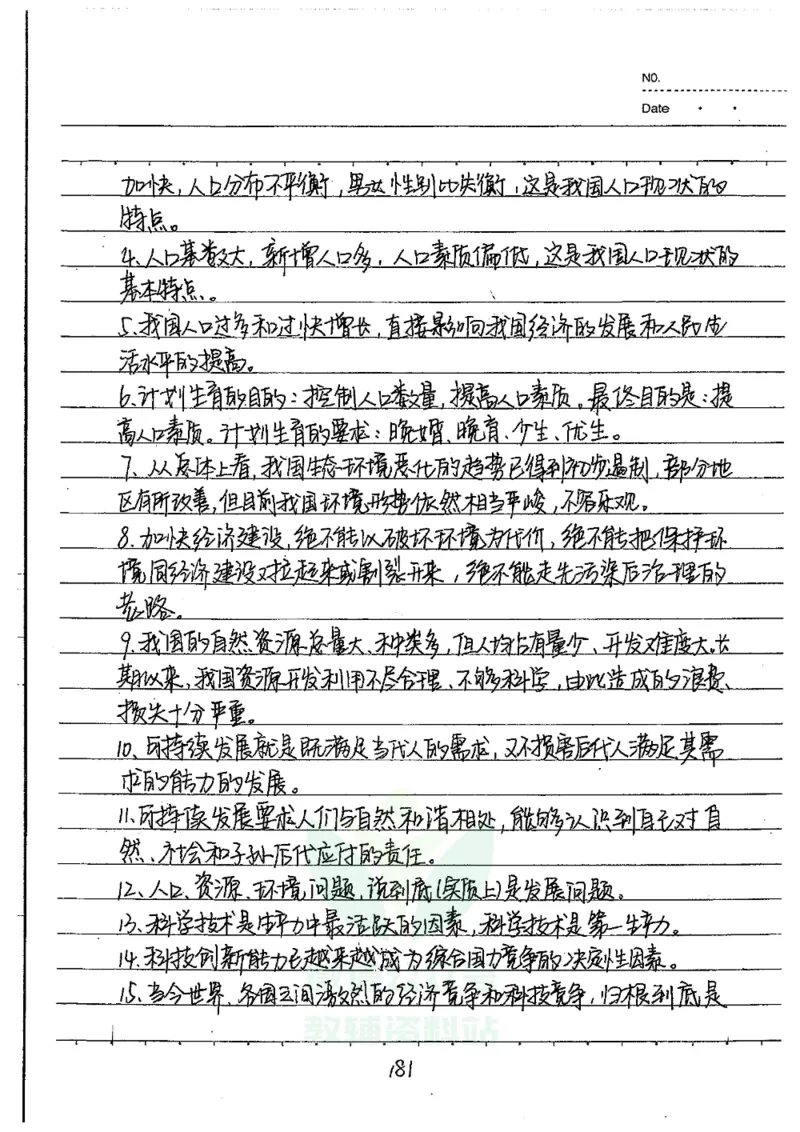 NO.
Date
加快,人口分布不平衡,男女性别比失衡,这是我国人口现状的
特点。
4、人口基数大,新增人口多,人口素质偏低,这是我国人口现状的
基本特点。
5、我国人口过多和过快增长,直接影响向我国经济的发展和人民生
活水平的提高。
6、计划生育的目的:控制人口数量,提高人口素质。最终目的是:提
高人口素质。计划生育的要求:晚婚、晚育、少生、优生。
7、从总体上看,我国生态环境恶化的趋势已得到初步遏制,部分地
区有所改善,但目前我国环境形势依然相当严峻,不容乐观。
8、加快经济建设,绝不能以破坏环境为代价,绝不能把保护环
境同经济建设对拉起来或割裂开来,绝不能走先污染后治理的
老路。
9、我国的自然资源总量大、种类多,但人均占有量少、开发难度大。长
期以来,我国资源开发利用不尽合理、不够科学,由此造成的浪费、
损失十分严重。
10、可持续发展就是既满足当代人的需求,又不损害后代人满足其需
求的能力的发展。
11、可持续发展要求人们与自然和谐相处,能够认识到自己对自
然、社会和子孙后代应付的责任。
12、人口、资源、环境问题,说到底(实质上)是发展问题。
13、科学技术是生产力中最活跃的因素,科学技术是第一生产力。
14、科技创新能力已越来越成为综合国力竞争的决定性因素。
15、当今世界、各国之间激烈的经济竞争和科技竞争,归根到底是
教辅资料站
181